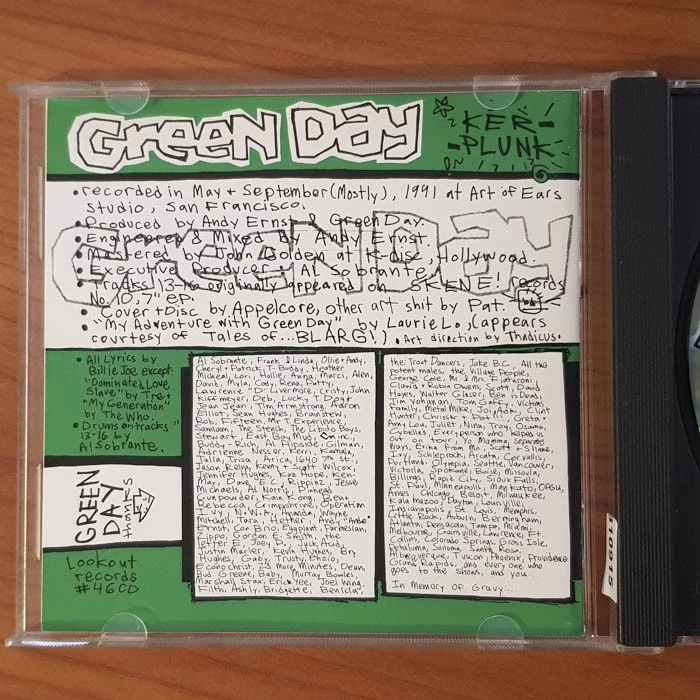 GREEN DAY
KER-
PLUNK
• recorded in May + September (Mostly), 1991 at Art of Ears
Studio, San Francisco.
• Produced by Andy Ernst & Green Day.
• Engineered & Mixed by Andy Ernst.
• Mastered by John Golden at K-disc, Hollywood.
• Executive Producer: Al Sobrante.
• Tracks 13-16 originally appeared on SKENE! records
No. 10, 7" ep.
• Cover + Disc by Appelcore, other art shit by Pat.
• "My Adventure with Green Day" by Laurie L., (appears
courtesy of Tales of... BLARG!) • Art direction by Thadicus.
GREEN DAY
• All Lyrics by
Billie Joe except:
"Dominated Love
Slave" by Tre +
"My Generation"
by The Who.
• Drums on tracks
13-16 by
Al Sobrante.
GREEN
DAY
thanks
Lookout
records
#46CD
Al Sobrante, Frank & Linda, Ollie + Andy,
Cheryl + Patrick, T. Buddy, Heather
Micheal, Lori, Hollie, Anna, Marci, Allen,
David, Myla, Cody, Rena, Patty,
Lawrence "D" Livermore, Cristy, John
Kiffmeyer, Deb, Lucky, T. Dogt,
Jean, Jean, Tim Armstrong, Aaron
Elliot, Sean Hughes, Brainsten,
Bob, Fifteen, Mr. T. Experience,
Samiam, The Stench, The Libido Boys,
Stewart, East Bay Mud inc.
Buddy + Rich, Al Flipside, Gilman,
Adrienne Nesser, Kerri, Kamala,
Talla, Trisa, Arica, 1640 7th st.,
Jason Relva, Kenny + Scott Wilcox,
Jennifer Hughes, Eva Hope, Ken,
May, Dave "E.C.", Rippinz, Jesse
Michaels, Al Norris, Pinhead
Gunpowder, Kain Kong, Bent,
Rebecca, Crimpshrine, Operation
Ivy, Nikita, Amanda, Wayne
Mitchell, Tara, Hether, Andy "Ando"
Ernst, Cor Brio, Eggplant, Parmesian,
Zippo, Gordon E. Smith, the
letter E, Joey P., Juck, Aimee,
Justin Marler, Kevin Hughes, Bry
Hughes, Gaby, Trusty, Enzo,
Econochrist, 23 More Minutes, Dean,
Bud Greene, Gaby, Murray Bowles,
Marshall Stax, Eric Yee, Joel Wing,
Filth, Ashly, Bridgette, Benicia,
the Trout Dancers, Jake B.C., All the
potent males, the Village People,
George Cole, Mr. & Mrs. Fiataroni
Clavo + Robin Owens, Scott, David
Hayes, Walter Glaser, Ben is Dead,
Tim Yohannan, Tom Gator, Victims
Family, Metal Mike, Jon, Adri, Clint
Hunter, Chrissy + Pat, Greta +
Amy Lou, Juliet, Nina, Troy, Osama,
Cybelle, Every person who helped us
out on tour, Yo Mamma, Separate
Ways, Erika from Mn., Scott + Shane,
Ivy, Schleprock, Arcata, Corvalis,
Portland, Olympia, Seattle, Vancouver,
Victoria, Spokane, Boise, Missoula,
Billings, Rapid City, Sioux Falls
St. Paul, Minneapolis, Mankato,
Ames, Chicago, Beloit, Milwaukee,
Kalamazoo, Dayton, Louisville,
Indianapolis, St. Louis, Memphis,
Little Rock, Auburn, Birmingham,
Atlanta, Pensacola, Tampa, Miami,
Melbourne, Gainsville, Lawrence, Ft.
Collins, Colorado Springs, Gross Isle,
Petaluma, Sonoma, Santa Rosa,
Albequerque, Tuscon, Phoenix, Providence
Grand Rapids, and every one who
goes to the shows, and you...
In Memory of Gravy...
110915